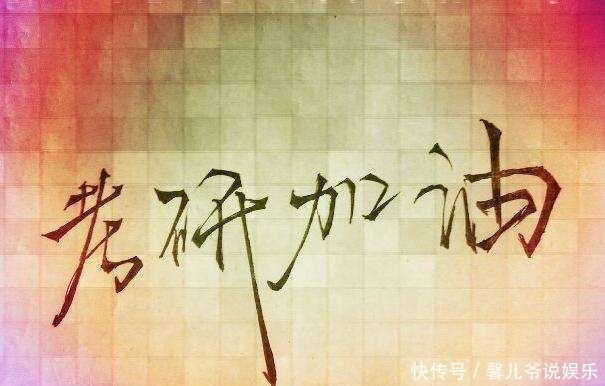 考研加油
快传号 / 馨儿爷说娱乐